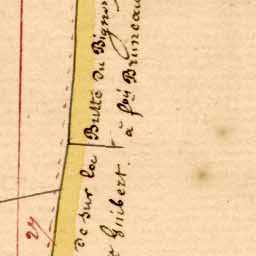 de sur la Butte du Bignon
Guibert. à foü Bruneau
27